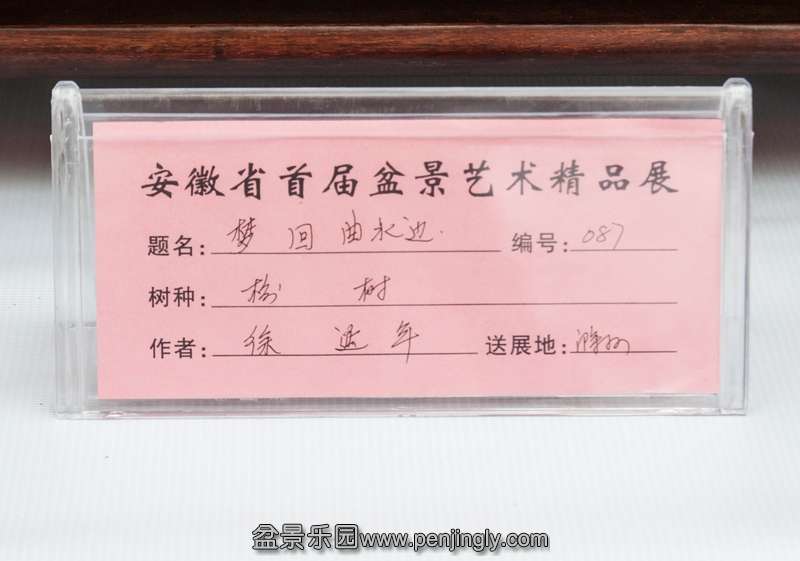 安徽省首届盆景艺术精品展
题名: 梦回曲水边 编号: 087
树种: 榆树
作者: 徐 年 送展地: 滁州
盆景乐园www.penjingly.com